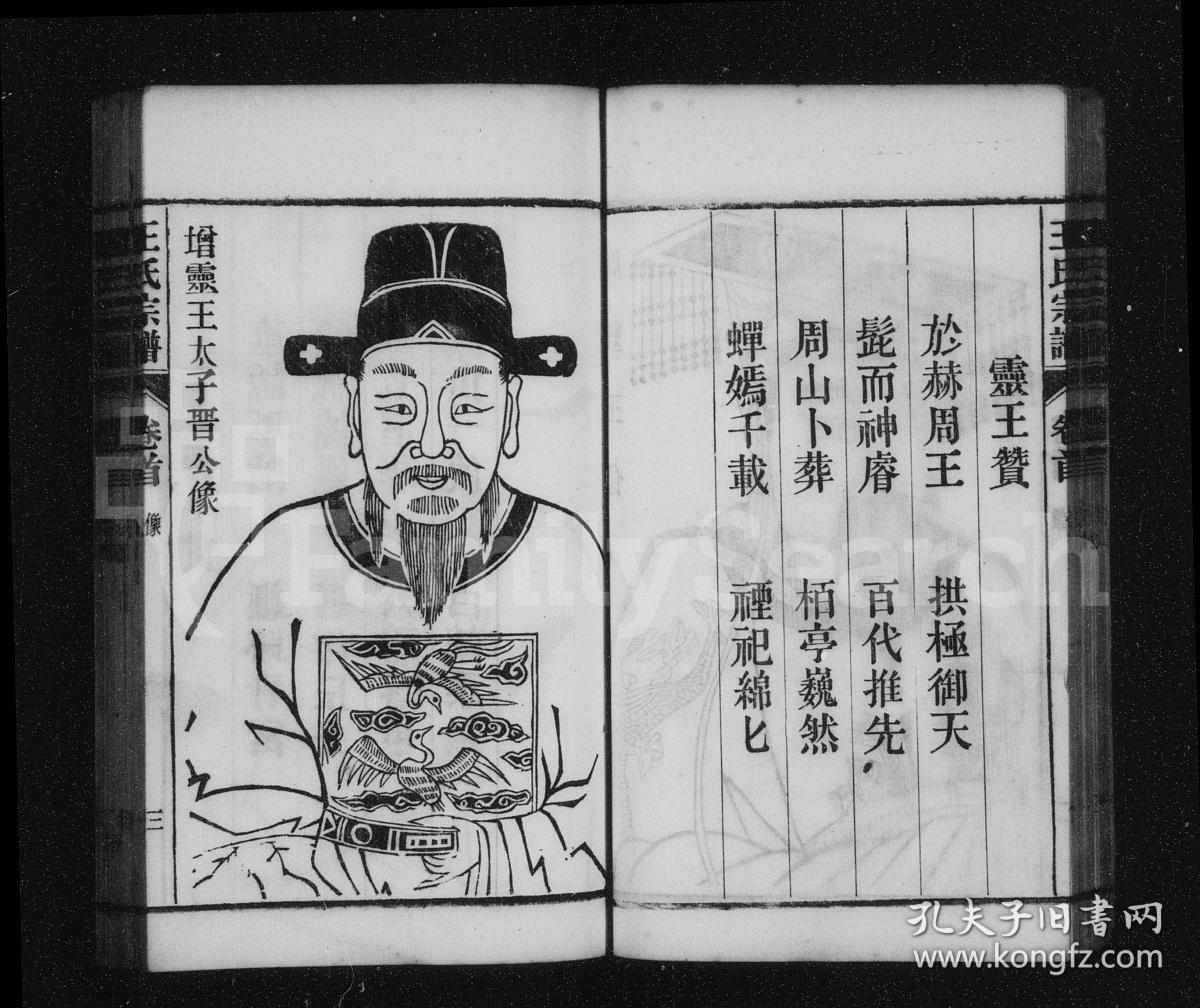 王氏宗譜 卷首
靈王贊
於赫周王 拱極御天
髭而神睿 百代推先
周山卜葬 栢亭巍然
蟬嫣千載 禋祀綿匕
增靈王太子晋公像
王氏宗譜 卷首 像 三
FamilySearch
孔夫子旧书网
www.kongfz.com